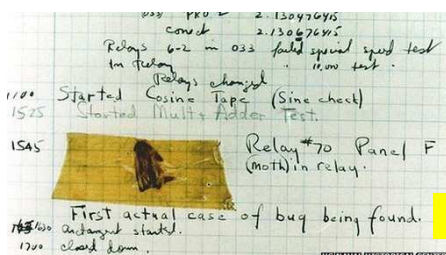 033 PRO 2 2.130476415
conect 2.130676415
Relays 6-2 in 033 failed special speed test
In Relay " 10,000 test .
Relays changed
1100 Started Cosine Tape (Sine check)
1525 Started Mult + Adder Test.
1545 Relay #70 Panel F
(moth) in relay.
First actual case of bug being found.
1630 antangent started.
1700 closed down.